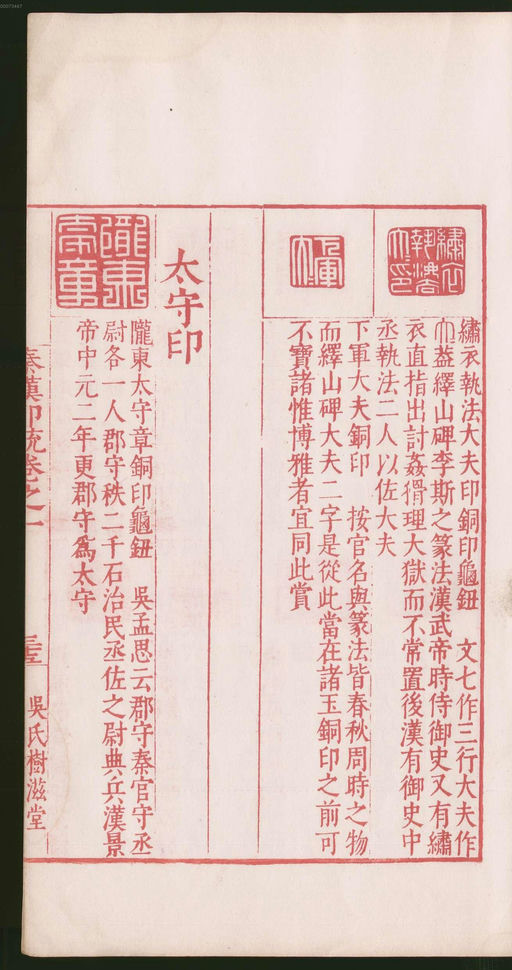 00073467
繡衣執法大夫印銅印龜鈕　文七作三行大夫作
夶益繹山碑李斯之篆法漢武帝時侍御史又有繡
衣直指出討姦猾理大獄而不常置後漢有御史中
丞執法二人以佐大夫
下軍大夫銅印　按官名與篆法皆春秋周時之物
而繹山碑大夫二字是從此當在諸玉銅印之前可
不寶諸惟博雅者宜同此賞
太守印
隴東太守章銅印龜鈕　吳孟思云郡守秦官守丞
尉各一人郡守秩二千石治民丞佐之尉典兵漢景
帝中元二年更郡守爲太守
秦漢印統卷之一
吳氏樹滋堂